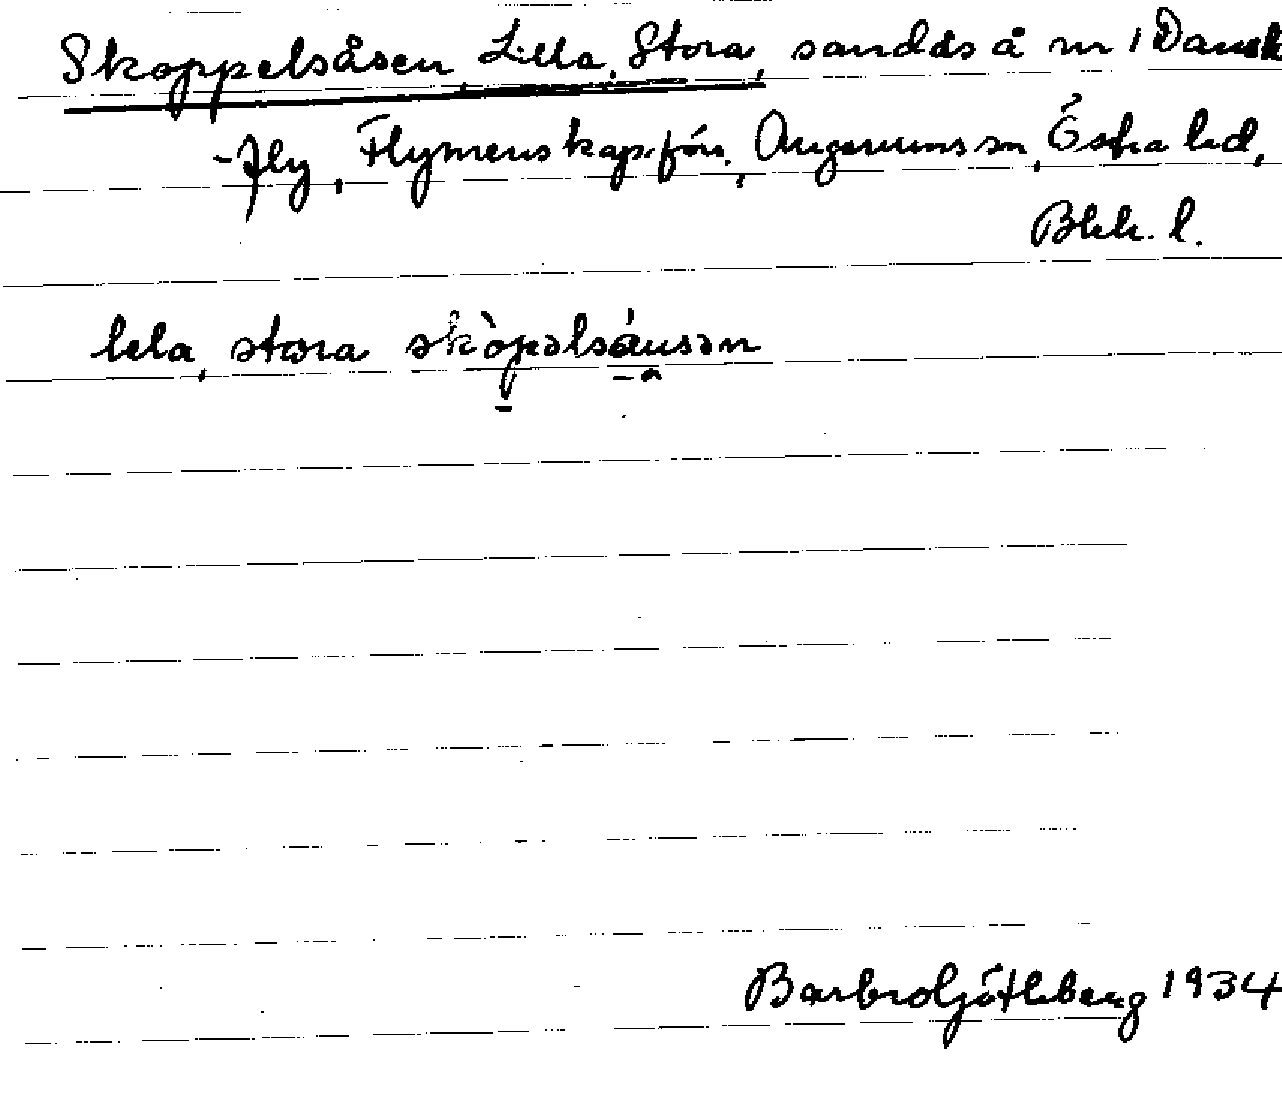 Skoppelsåsen, Lilla, Stora, sandås å nr 1 Dansk
-fly, Flymens kap.förs., Augerums sn, Östra hd,
Blek. l.
lela, stora skòpəlsáusən
Barbro Götheberg 1934